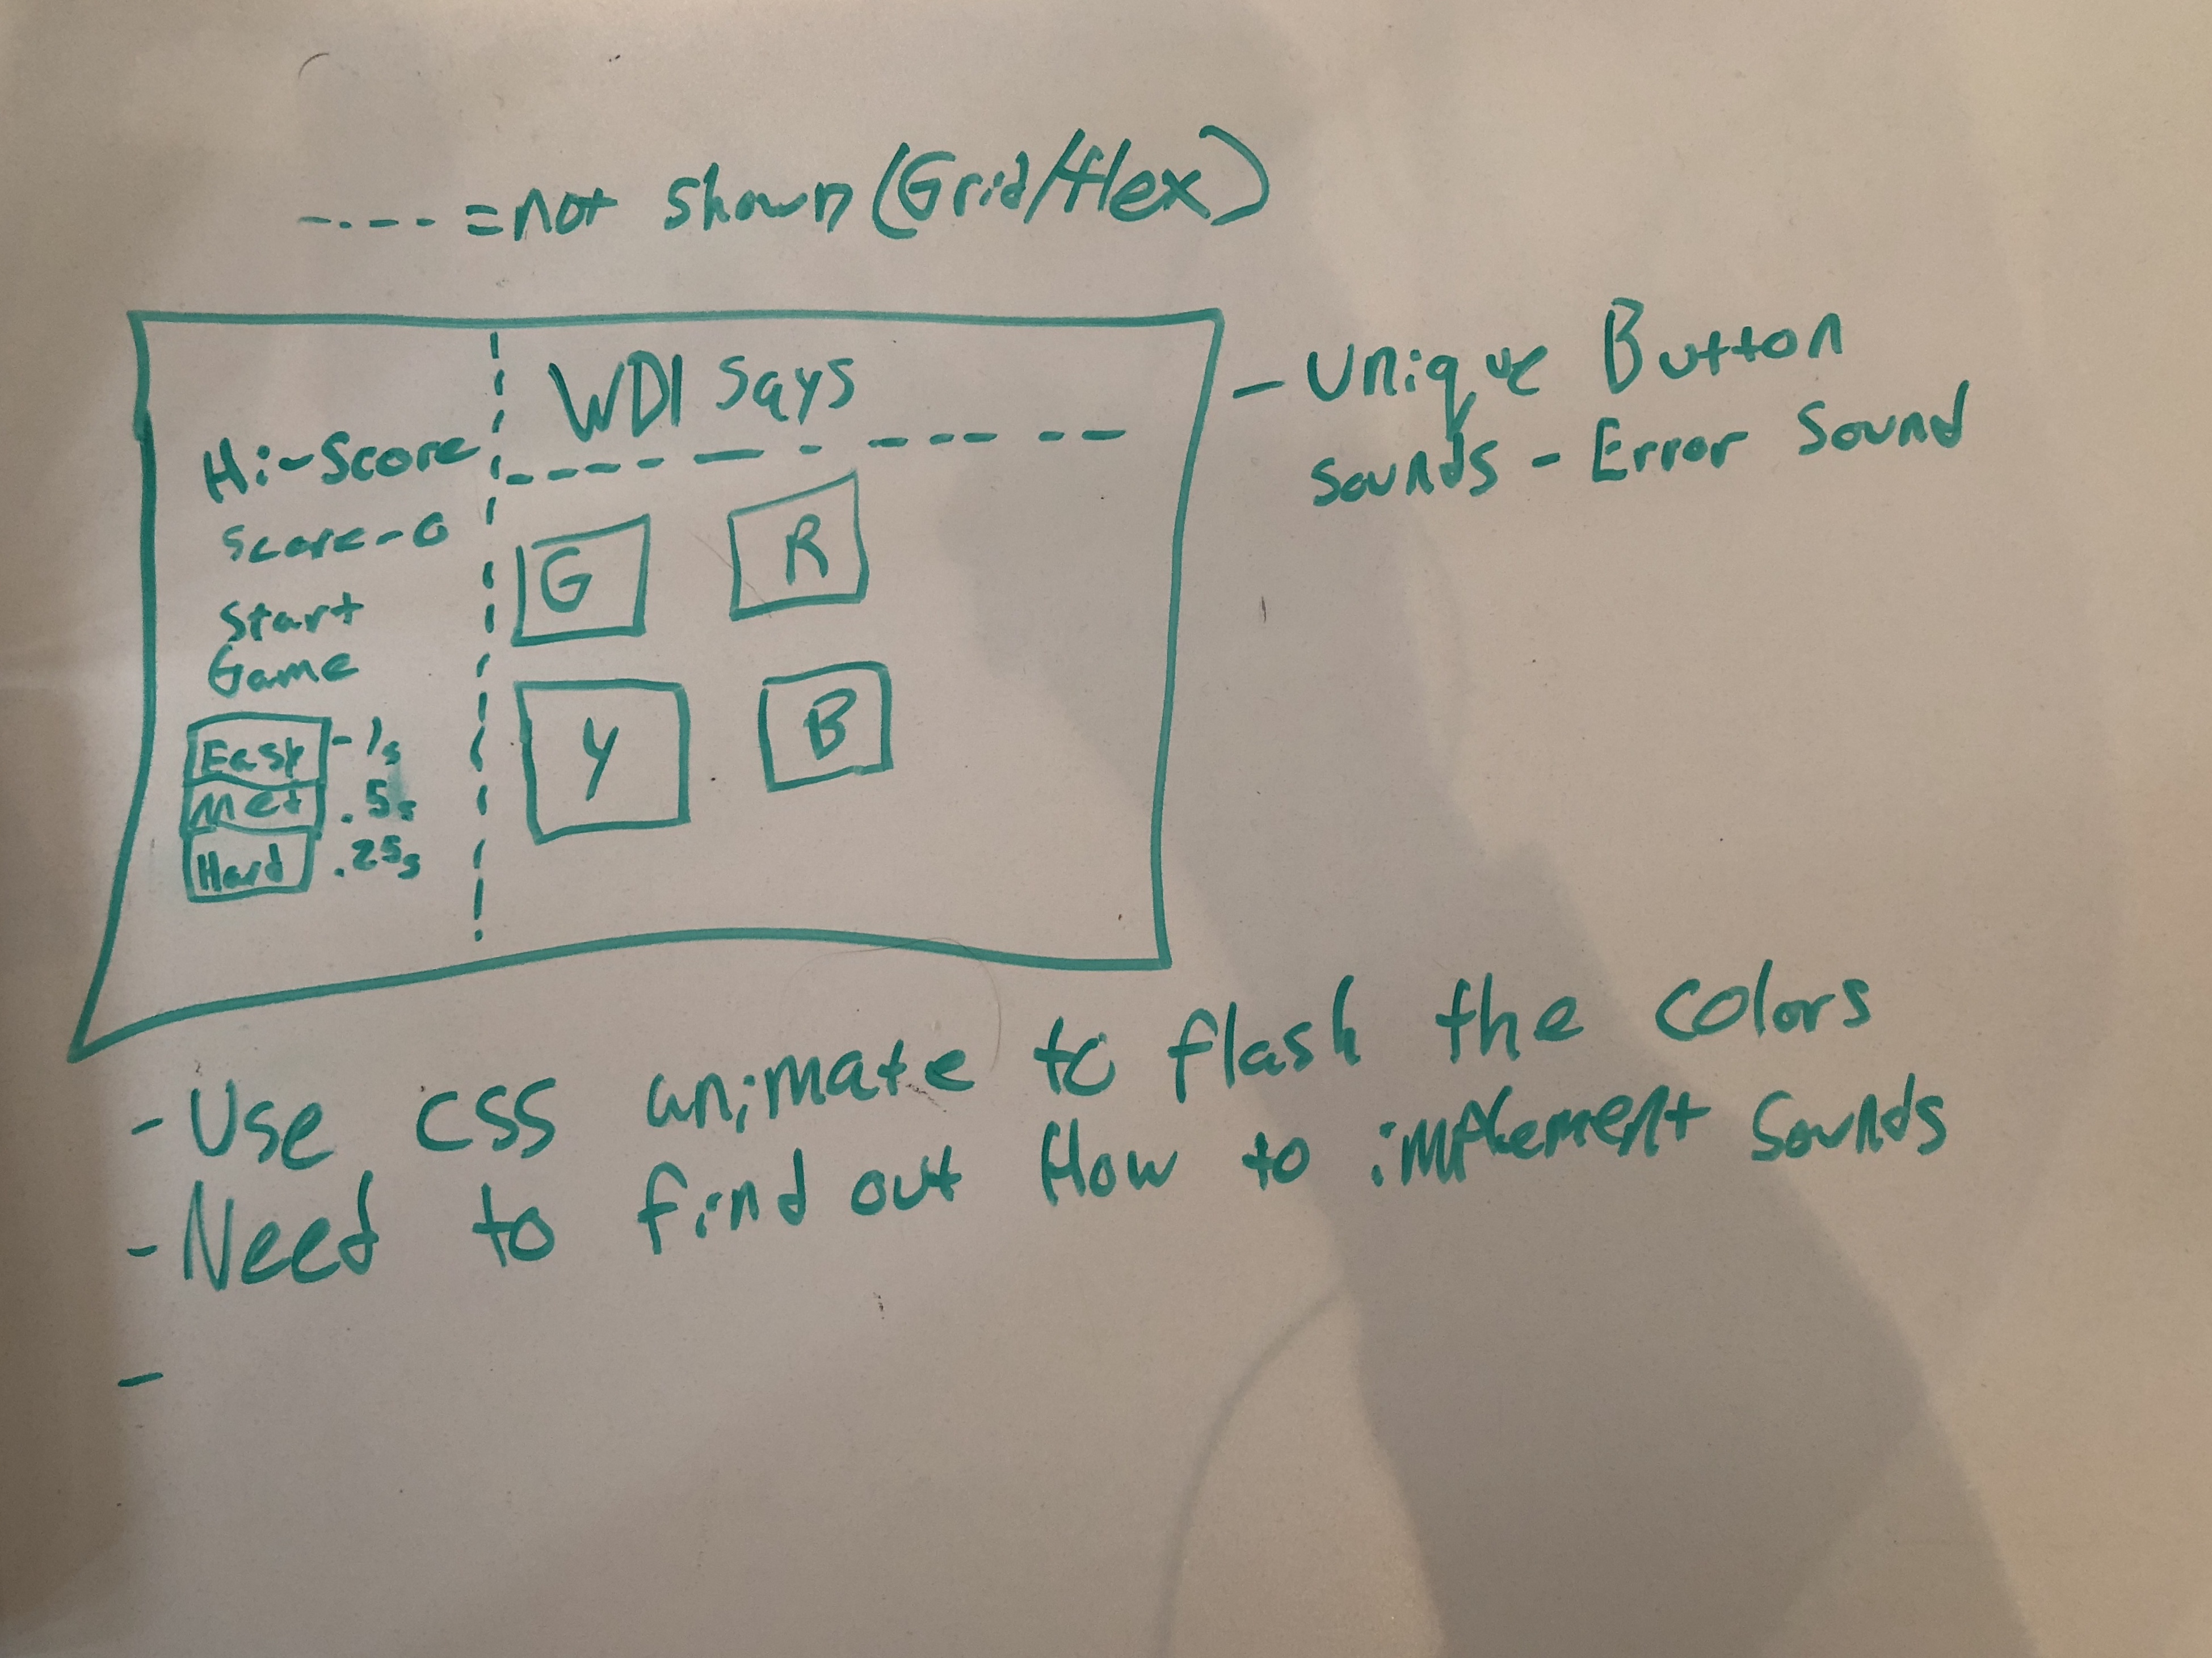 ---- = not shown (Grid/flex)
WDI says
Hi-Score
Score-0
Start
Game
Easy -1s
Med .5s
Hard .25s
G
R
Y
B
- Unique Button
sounds - Error Sound
- Use css animate to flash the colors
- Need to find out How to implement sounds
-